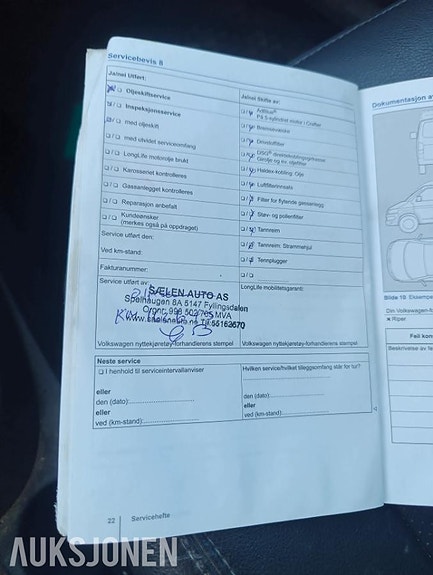 Servicebevis 8
Ja/nei Utført:
Oljeskiftservice
Inspeksjonsservice
med oljeskift
med utvidet serviceomfang
LongLife motorolje brukt
Karosseriet kontrolleres
Gassanlegget kontrolleres
Reparasjon anbefalt
Kundeønsker
(merkes også på oppdraget)
Service utført den:
Ved km-stand:
Fakturanummer:
Service utført av:
SÆLEN AUTO AS
Spelhaugen 8A 5147 Fyllingsdalen
MVA
Volkswagen nyttekjøretøy-forhandlerens stempel
Ja/nei Skifte av:
AdBlue®
På 5-sylindret motor i Crafter
Bremsevæske
Drivstoffilter
DSG®
Haldex-kobling: Olje
Luftfilterinnsats
Filter for flytende gassanlegg
Støv- og pollenfilter
Tannreim
Tannreim: Strammehjul
Tennplugger
LongLife mobilitetsgaranti:
Volkswagen nyttekjøretøy-forhandlerens stempel
Neste service
I henhold til serviceintervallanviser
eller
den (dato):
eller
ved (km-stand):
Hvilken service/hvilket tilleggsomfang står for tur?
den (dato):
eller
ved (km-stand):
22 Servicehefte
Dokumentasjon av
Bilde 19
Din Volkswagen
Riper
Feil kon
Beskrivelse av fe
AUKSJONEN